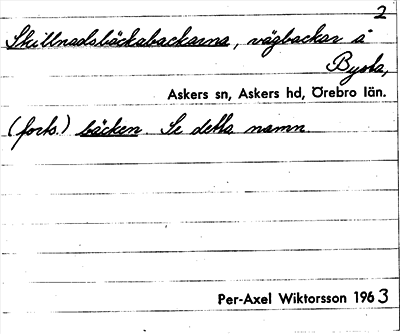 2
Skillnadsbäcksbackarna, vägbackar å
Bysta,
Askers sn, Askers hd, Örebro län.
(forts.) bäcken. Se detta namn.
Per-Axel Wiktorsson 1963